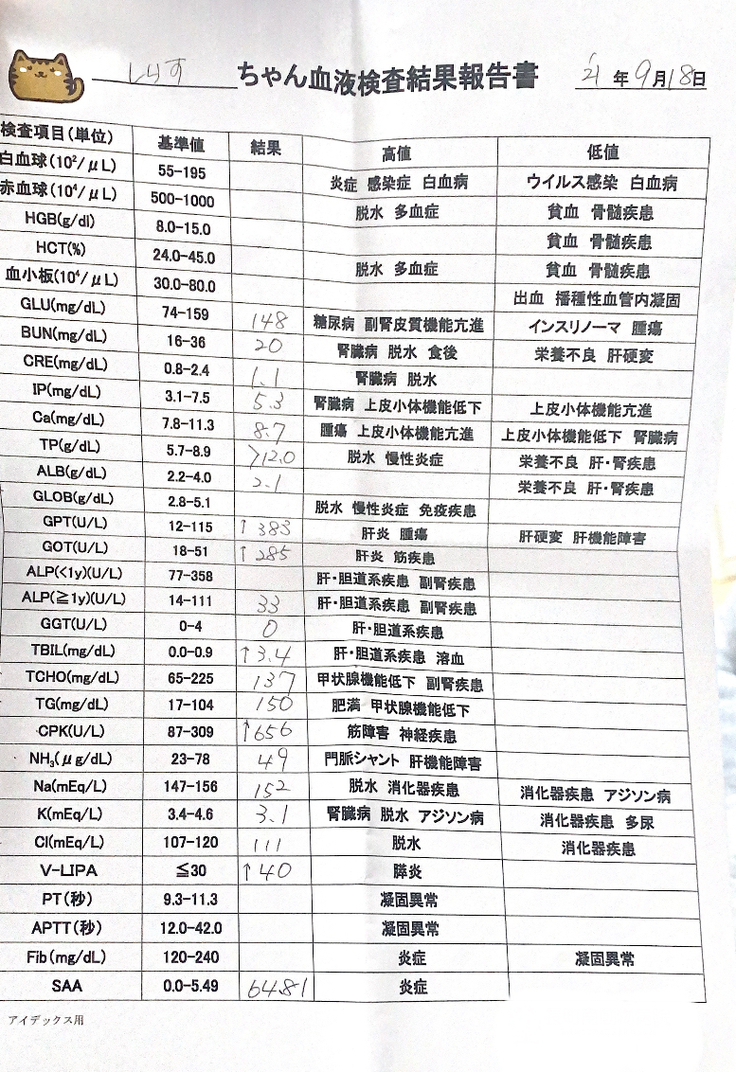 しらす ちゃん血液検査結果報告書 '21 年 9月18日
検査項目(単位) 基準値 結果 高値 低値
白血球(10²/μL) 55-195 炎症 感染症 白血病 ウイルス感染 白血病
赤血球(10⁴/μL) 500-1000 脱水 多血症 貧血 骨髄疾患
HGB(g/dl) 8.0-15.0 貧血 骨髄疾患
HCT(%) 24.0-45.0 脱水 多血症 貧血 骨髄疾患
血小板(10⁴/μL) 30.0-80.0 出血 播種性血管内凝固
GLU(mg/dL) 74-159 148 糖尿病 副腎皮質機能亢進 インスリノーマ 腫瘍
BUN(mg/dL) 16-36 20 腎臓病 脱水 食後 栄養不良 肝硬変
CRE(mg/dL) 0.8-2.4 1.1 腎臓病 脱水
IP(mg/dL) 3.1-7.5 5.3 腎臓病 上皮小体機能低下 上皮小体機能亢進
Ca(mg/dL) 7.8-11.3 8.7 腫瘍 上皮小体機能亢進 上皮小体機能低下 腎臓病
TP(g/dL) 5.7-8.9 >12.0 脱水 慢性炎症 栄養不良 肝・腎疾患
ALB(g/dL) 2.2-4.0 2.1 栄養不良 肝・腎疾患
GLOB(g/dL) 2.8-5.1 脱水 慢性炎症 免疫疾患
GPT(U/L) 12-115 ↑383 肝炎 腫瘍 肝硬変 肝機能障害
GOT(U/L) 18-51 ↑285 肝炎 筋疾患
ALP(<1y)(U/L) 77-358 肝・胆道系疾患 副腎疾患
ALP(≧1y)(U/L) 14-111 33 肝・胆道系疾患 副腎疾患
GGT(U/L) 0-4 0 肝・胆道系疾患
TBIL(mg/dL) 0.0-0.9 ↑3.4 肝・胆道系疾患 溶血
TCHO(mg/dL) 65-225 137 甲状腺機能低下 副腎疾患
TG(mg/dL) 17-104 150 肥満 甲状腺機能低下
CPK(U/L) 87-309 ↑656 筋障害 神経疾患
NH₃(μg/dL) 23-78 49 門脈シャント 肝機能障害
Na(mEq/L) 147-156 152 脱水 消化器疾患 消化器疾患 アジソン病
K(mEq/L) 3.4-4.6 3.1 腎臓病 脱水 アジソン病 消化器疾患 多尿
Cl(mEq/L) 107-120 111 脱水 消化器疾患
V-LIPA ≦30 ↑40 膵炎
PT(秒) 9.3-11.3 凝固異常
APTT(秒) 12.0-42.0 凝固異常
Fib(mg/dL) 120-240 炎症 凝固異常
SAA 0.0-5.49 64.81 炎症
アイデックス用